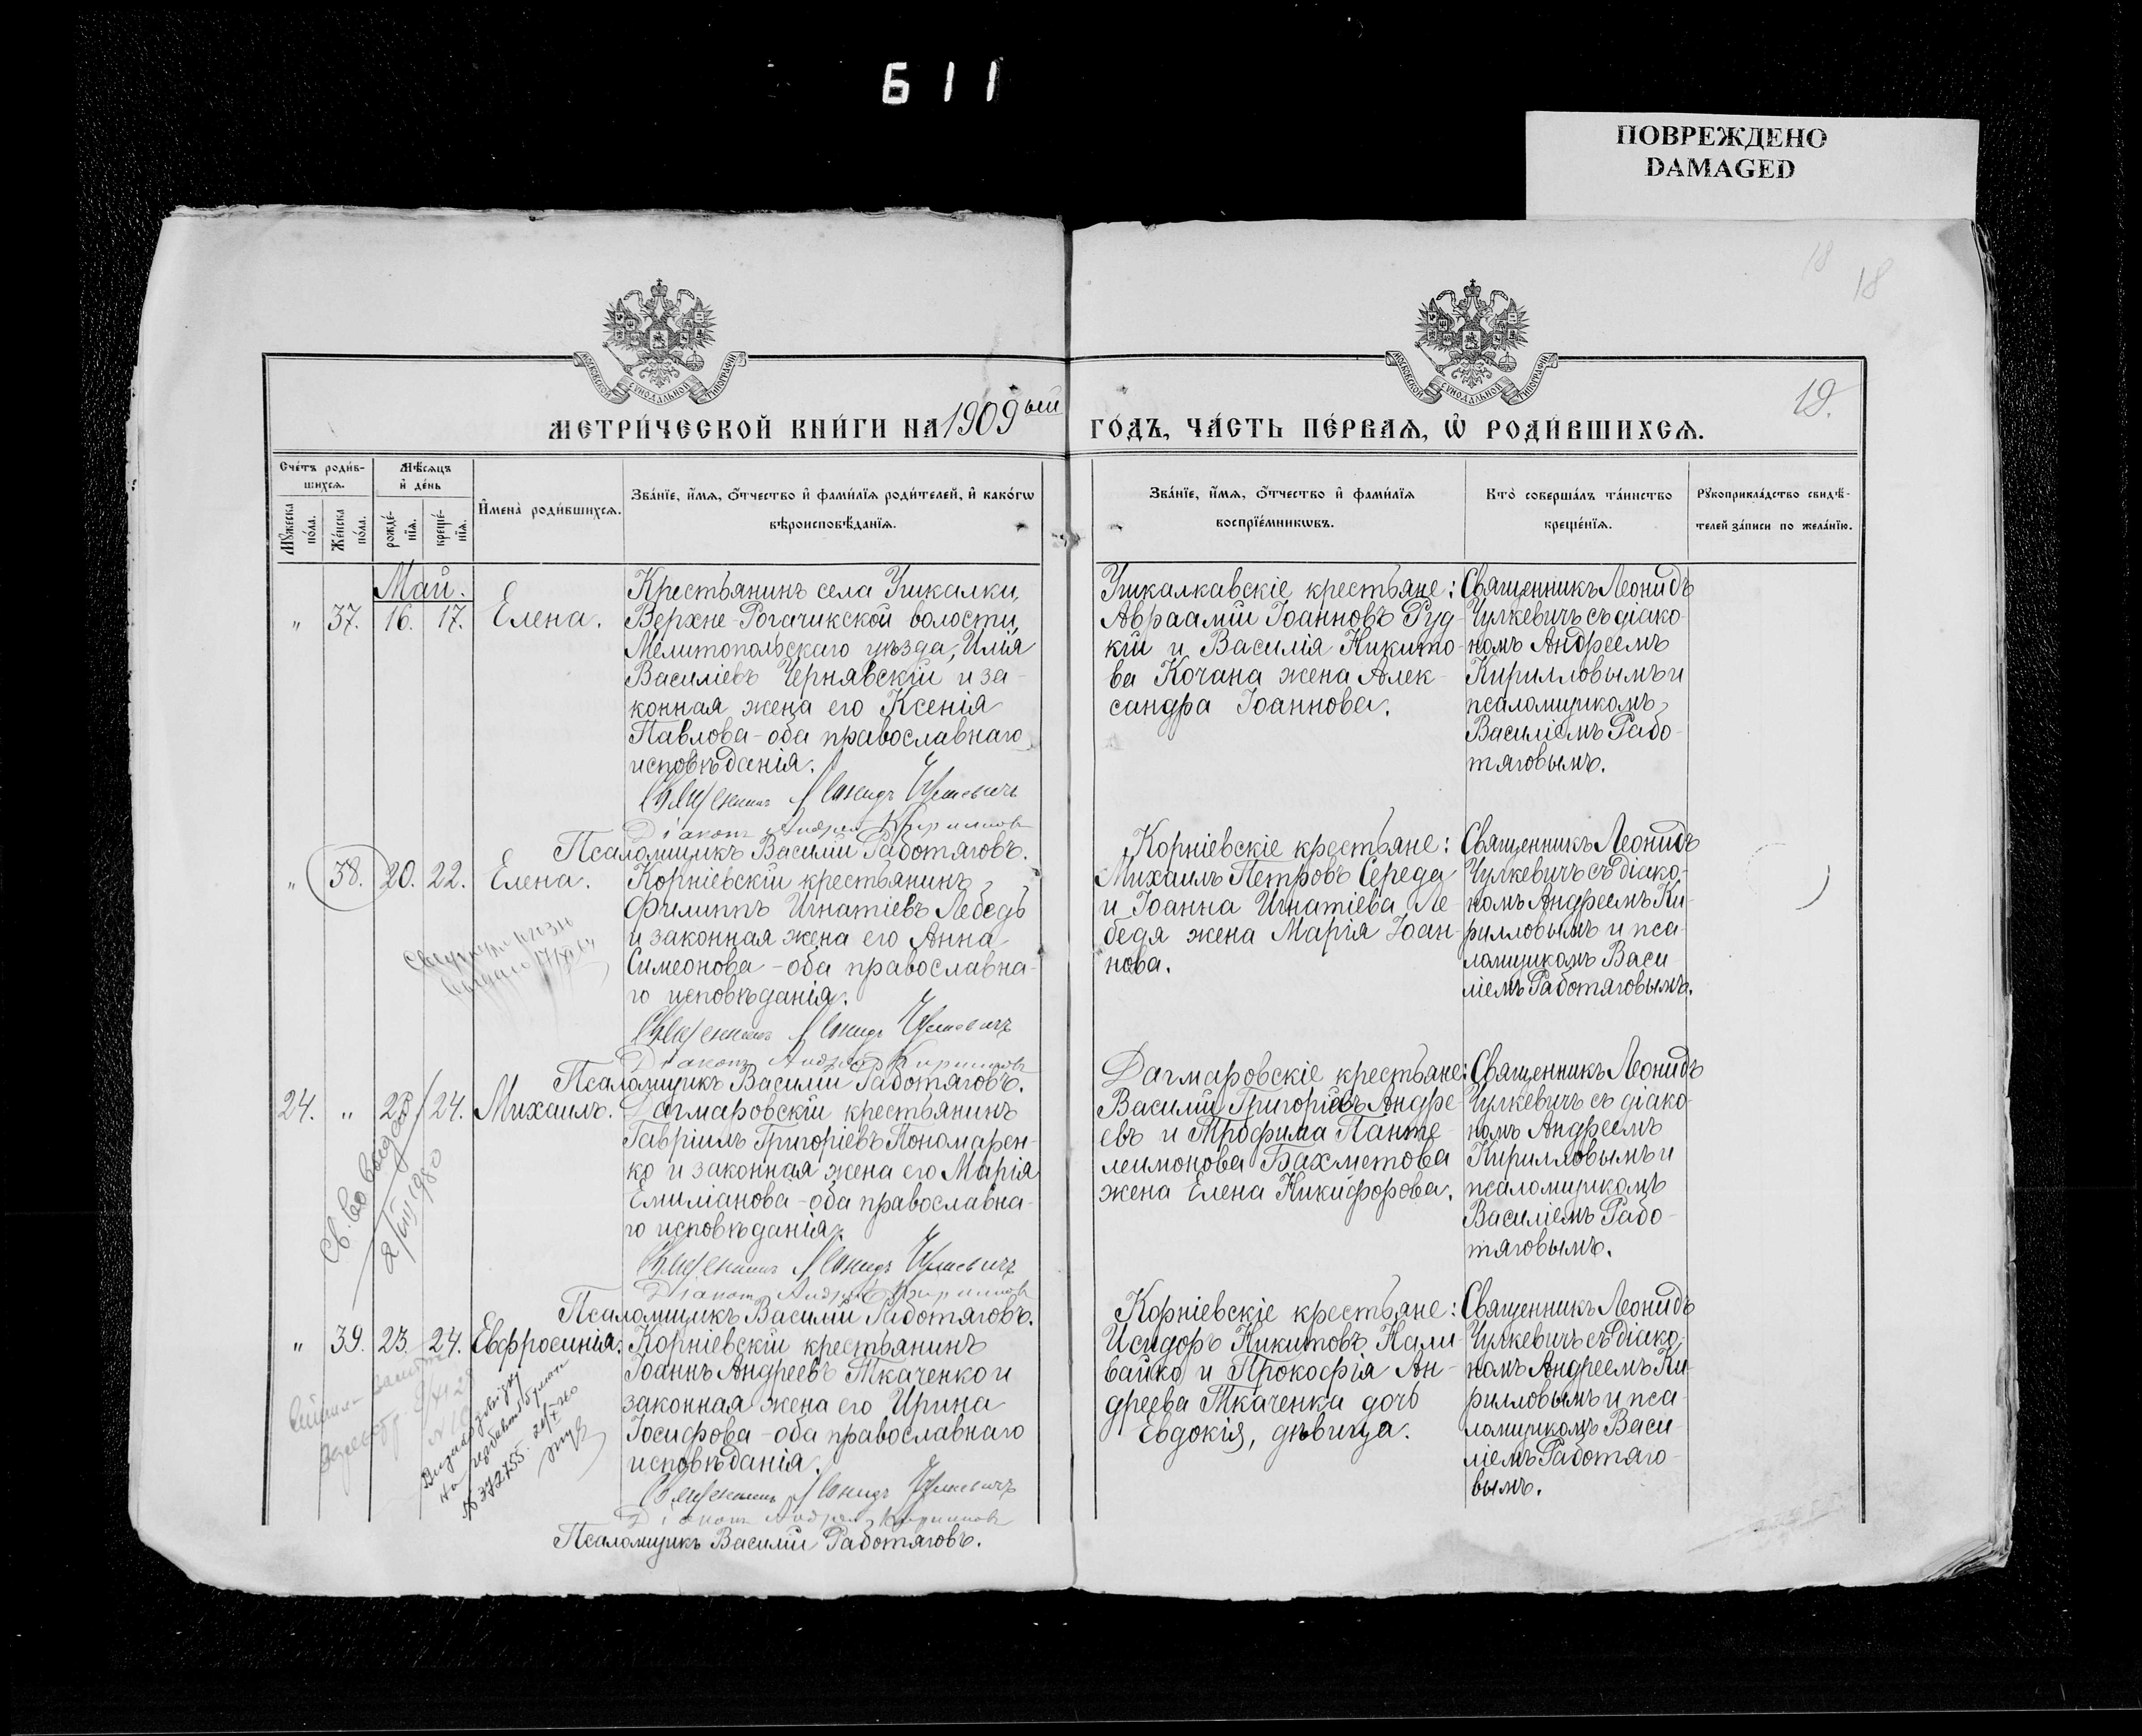 611
ПОВРЕЖДЕНО
DAMAGED
18
18
МОСКОВСКОЙ СѴНОДАЛЬНОЙ ТИПОГРАФІИ
МОСКОВСКОЙ СѴНОДАЛЬНОЙ ТИПОГРАФІИ
19.
МЕТРИ́ЧЕСКОЙ КНИ́ГИ НА 1909ый ГО́ДЪ, ЧА́СТЬ ПЕ́РВАѦ, Ѡ҆ РОДИ́ВШИХСѦ.
Сче́тъ роди́в-
шихсѧ.
Мѣ́сѧцъ
и҆ де́нь
Мꙋ́жеска
по́ла.
Же́нска
по́ла.
рожде́-
нїѧ.
креще́-
нїѧ.
И҆мена̀ роди́вшихсѧ.
Зва́нїе, и҆́мѧ, ѻ҆́тчество и҆ фами́лїѧ роди́телей, и҆ како́гѡ
вѣроисповѣ́данїѧ.
Зва́нїе, и҆́мѧ, ѻ҆́тчество и҆ фами́лїѧ
воспрїе́мникѡвъ.
Кто̀ соверша́лъ та́инство
креще́нїѧ.
Рꙋкоприкла́дство свидѣ́-
телей за́писи по жела́нїю.
Май.
" 37. 16. 17. Елена.
Крестьянинъ села Ушкалки,
Верхне-Рогачикской волости,
Мелитопольскаго уѣзда, Илія
Василіевъ Чернявскій и за-
конная жена его Ксенія
Павлова - оба православнаго
исповѣданія.
Священникъ Леонидъ Чулкевичъ
Діаконъ Андрей Кирилловъ
Псаломщикъ Василій Работяговъ.
Ушкалкавскіе крестьяне:
Авраамій Іоанновъ Руд-
кій и Василія Никито-
ва Кочана жена Алек-
сандра Іоаннова.
Священникъ Леонидъ
Чулкевичъ съ діако-
номъ Андреемъ
Кирилловымъ и
псаломщикомъ
Василіемъ Рабо-
тяговымъ.
" 38. 20. 22. Елена.
Корніевскій крестьянинъ
Филиппъ Игнатіевъ Лебедь
и законная жена его Анна
Симеонова - оба православна-
го исповѣданія.
Священникъ Леонидъ Чулкевичъ
Діаконъ Андрей Кирилловъ
Псаломщикъ Василій Работяговъ.
Корніевскіе крестьяне:
Михаилъ Петровъ Середа
и Іоанна Игнатіева Ле-
бедя жена Марія Іоан-
нова.
Священникъ Леонидъ
Чулкевичъ съ діако-
номъ Андреемъ Ки-
рилловымъ и пса-
ломщикомъ Васи
ліемъ Работяговымъ.
24. " 23 24. Михаилъ.
Св. во выдано
2/VII 1980
Дагмаровскій крестьянинъ
Гавріилъ Григоріевъ Пономарен-
ко и законная жена его Марія
Емиліанова - оба православна-
го исповѣданія.
Священникъ Леонидъ Чулкевичъ
Діаконъ Андрей Кирилловъ
Псаломщикъ Василій Работяговъ.
Дагмаровскіе крестьяне:
Василій Григоріевъ Андре-
евъ и Трофима Панте-
леимонова Бахметова
жена Елена Никифорова.
Священникъ Леонидъ
Чулкевичъ съ діако-
номъ Андреемъ
Кирилловымъ и
псаломщикомъ
Василіемъ Рабо-
тяговымъ.
" 39. 23. 24. Евфросинія.
№ 372755
Корніевскій крестьянинъ
Іоаннъ Андреевъ Ткаченко и
законная жена его Ирина
Іосифова - оба православнаго
исповѣданія.
Священникъ Леонидъ Чулкевичъ
Діаконъ Андрей Кирилловъ
Псаломщикъ Василій Работяговъ.
Корніевскіе крестьяне:
Исидоръ Никитовъ Нали-
вайко и Прокофія Ан-
дреева Ткаченка дочь
Евдокія, дѣвица.
Священникъ Леонидъ
Чулкевичъ съ діако-
номъ Андреемъ Ки-
рилловымъ и пса-
ломщикомъ Васи-
ліемъ Работяго-
вымъ.